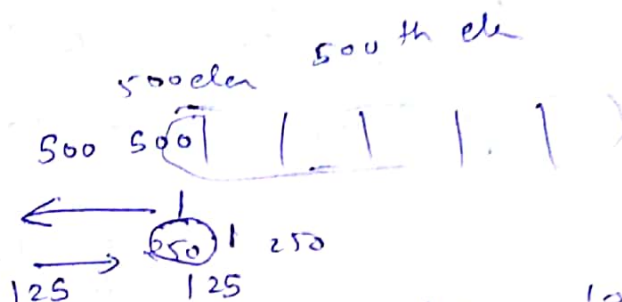 500th ele
500 ele
500 500
250 250
125 125